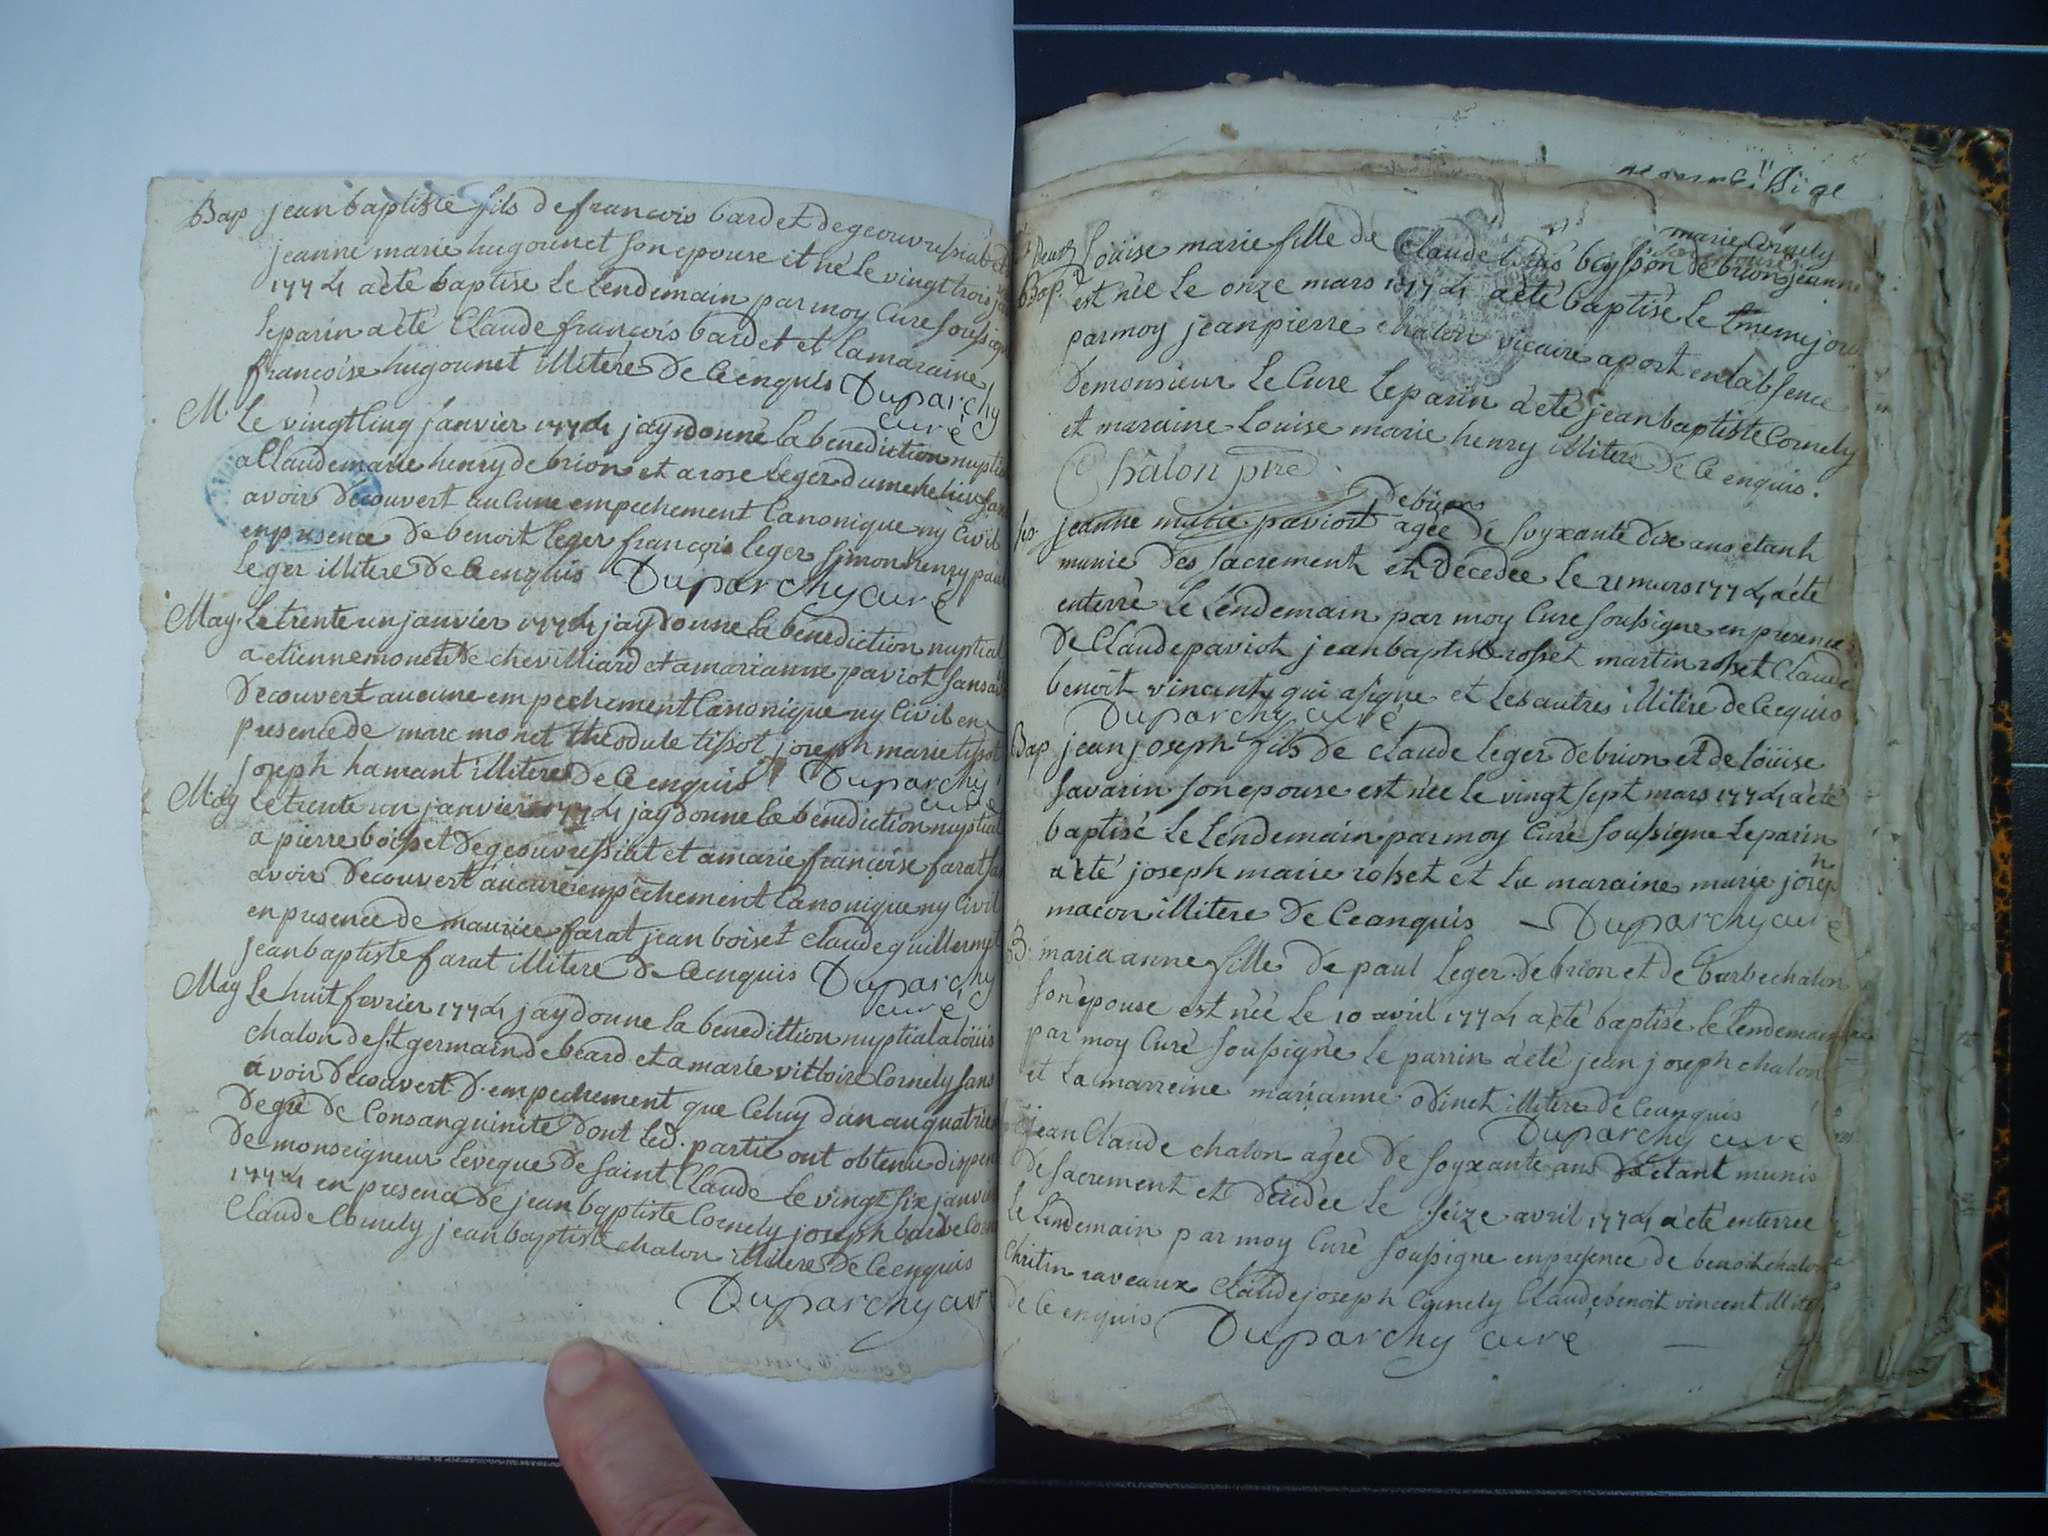 Bap jean baptiste fils de francois bard et de geouvrissiat et
jeanne marie hugounet son epouse et né le vingt trois
1774 a eté baptise le lendemain par moy Curé soussigné
le parin a eté Claude francois bardet et la maraine
francoise hugounet illitere de ce enquis Duparchy
curé
M. Le vingt cinq janvier 1774 jay donné la benediction nuptial
a Claude marie henry de brion et a rose leger du meme lieu sans
avoir decouvert aucune empechement Canonique ny Civil
en presence de benoit leger francois leger simon henry paul
leger illitere de ce enquis Duparchy curé
May. Le trente un janvier 1774 jay donné la benediction nuptial
a etienne monet de chevilliard et a marianne paviot sans avoir
decouvert aucune empechement Canonique ny Civil en
presence de marc monet theodule tissot joseph marie tissot
joseph hamant illitere de ce enquis Duparchy
curé
May Le trente un janvier 1774 jay donné la benediction nuptial
a pierre boisset de geouvrissiat et a marie francoise farat sans
avoir decouvert aucune empechement Canonique ny Civil
en presence de maurice farat jean boiset claude guillermet
jean baptiste farat illitere de ce enquis Duparchy
curé
May Le huit fevrier 1774 jay donne la benedittion nuptial a loüis
chalon de st germain de beard et a marie vittoire Cornely sans
avoir decouvert d'empechement que Celuy d'un au quatrieme
degré de Consanguinité dont led. partie ont obtenu dispense
de monseigneur leveque de saint Claude le vingt six janvier
1774 en presence de jean baptiste Cornely joseph
Claude Cornely jean baptiste chalon illitere de ce enquis
Duparchy curé
marie Cornely
son epouse
Loüise marie fille de Claude loüis beysson de brion jeanne
Bap. est née le onze mars 1774 a eté baptisé le meme jour
par moy jean pierre chalon vicaire a port en labsence
de monsieur le Curé le parin a eté jean baptiste Cornely
et maraine Louise marie henry illitere de ce enquis.
Chalon ptre
de brion
jeanne marie paviot agée de soyxante dix ans etant
munie des sacrement et decedée le 21 mars 1774 a eté
enterré le lendemain par moy Curé soussigne en presence
de Claude paviot jean baptiste rosset martin rosset Claude
benoit vincent qui a signe et les autres illitere de ce enquis
Duparchy curé
Bap jean joseph fils de Claude leger de brion et de loüise
savarin son epouse est née le vingt sept mars 1774 a eté
baptisé le lendemain par moy Curé soussigne le parin
a eté joseph marie rosset et la maraine marie joseph
macon illitere de ce anquis — Duparchy curé
B. maria anne fille de paul leger de brion et de barbe chalon
son epouse est née le 10 avril 1774 a eté baptisé le lendemain
par moy Curé soussigné le parrin a eté jean joseph chalon
et la marreine marianne odinet illitere de ce anquis
Duparchy curé
jean Claude chalon agée de soyxante ans etant munis
de sacrement et decidée le seize avril 1774 a eté enterree
le lendemain par moy Curé soussigne en presence de benoit chalon
Chritin raveaux Claude joseph Cornely Claude benoit vincent illite
de ce enquis Duparchy curé